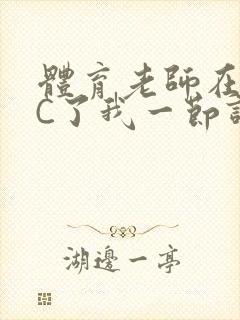 體育老師在
C了我一節
湖邊一亭